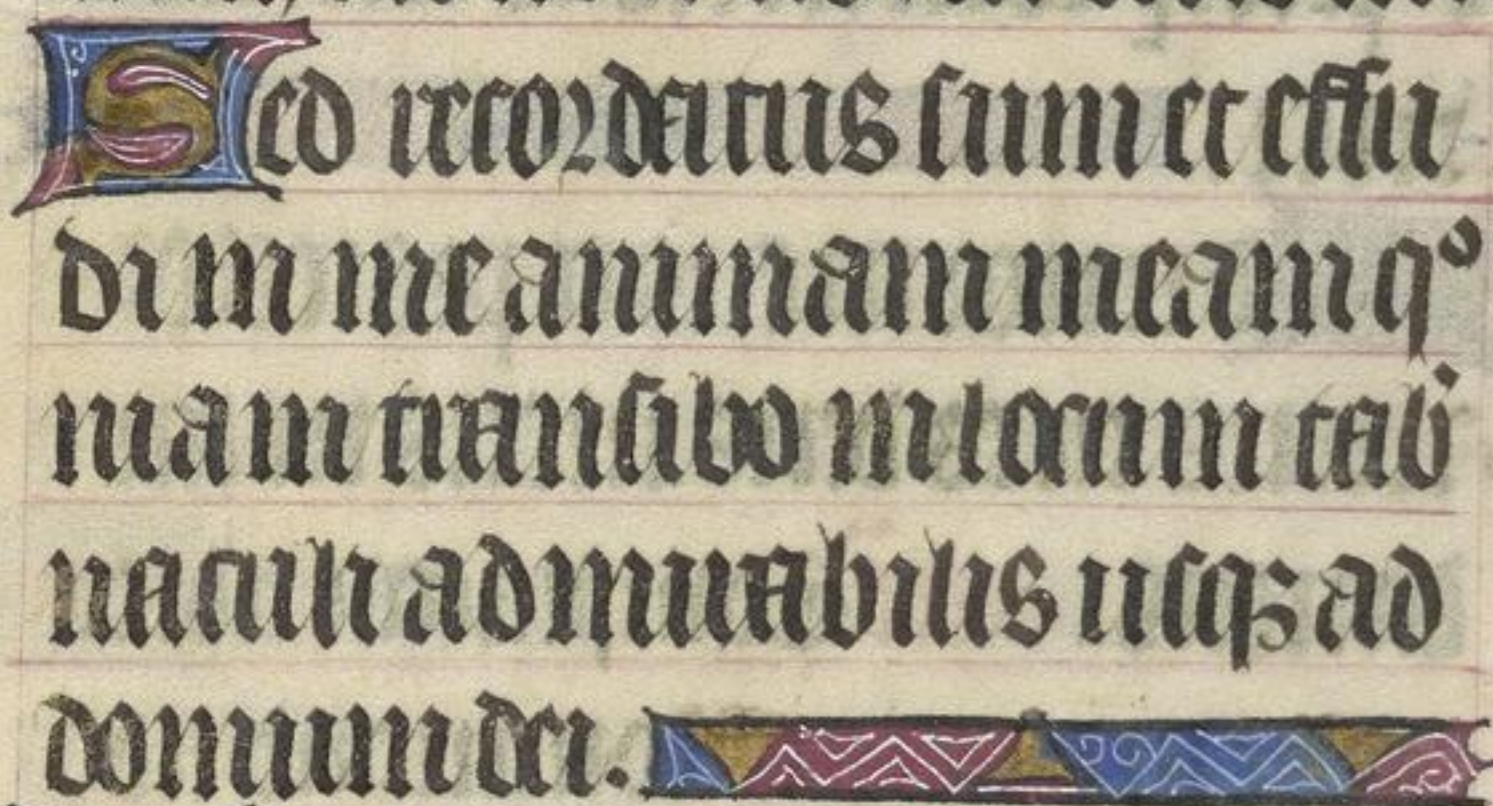 Sed recordatus sum et effu
di in me animam meam qº
niam transibo in locum tab̉
naculi admirabilis usqꝫ ad
domum dei.